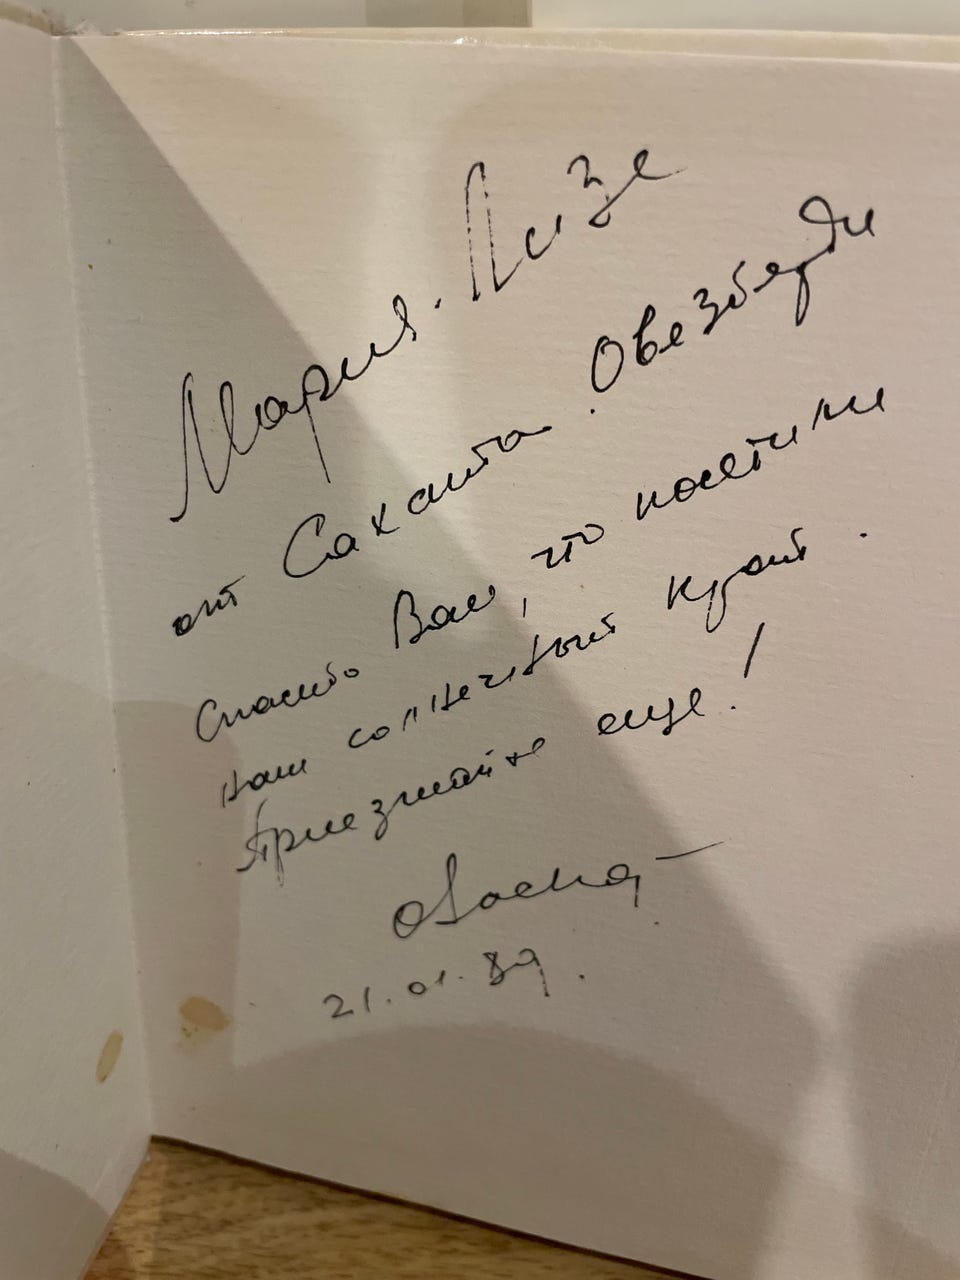 Мария-Лизе
от Сахата Овезберди
Спасибо Вам, что посетили
наш солнечный край.
Приезжайте еще!
21.01.89.